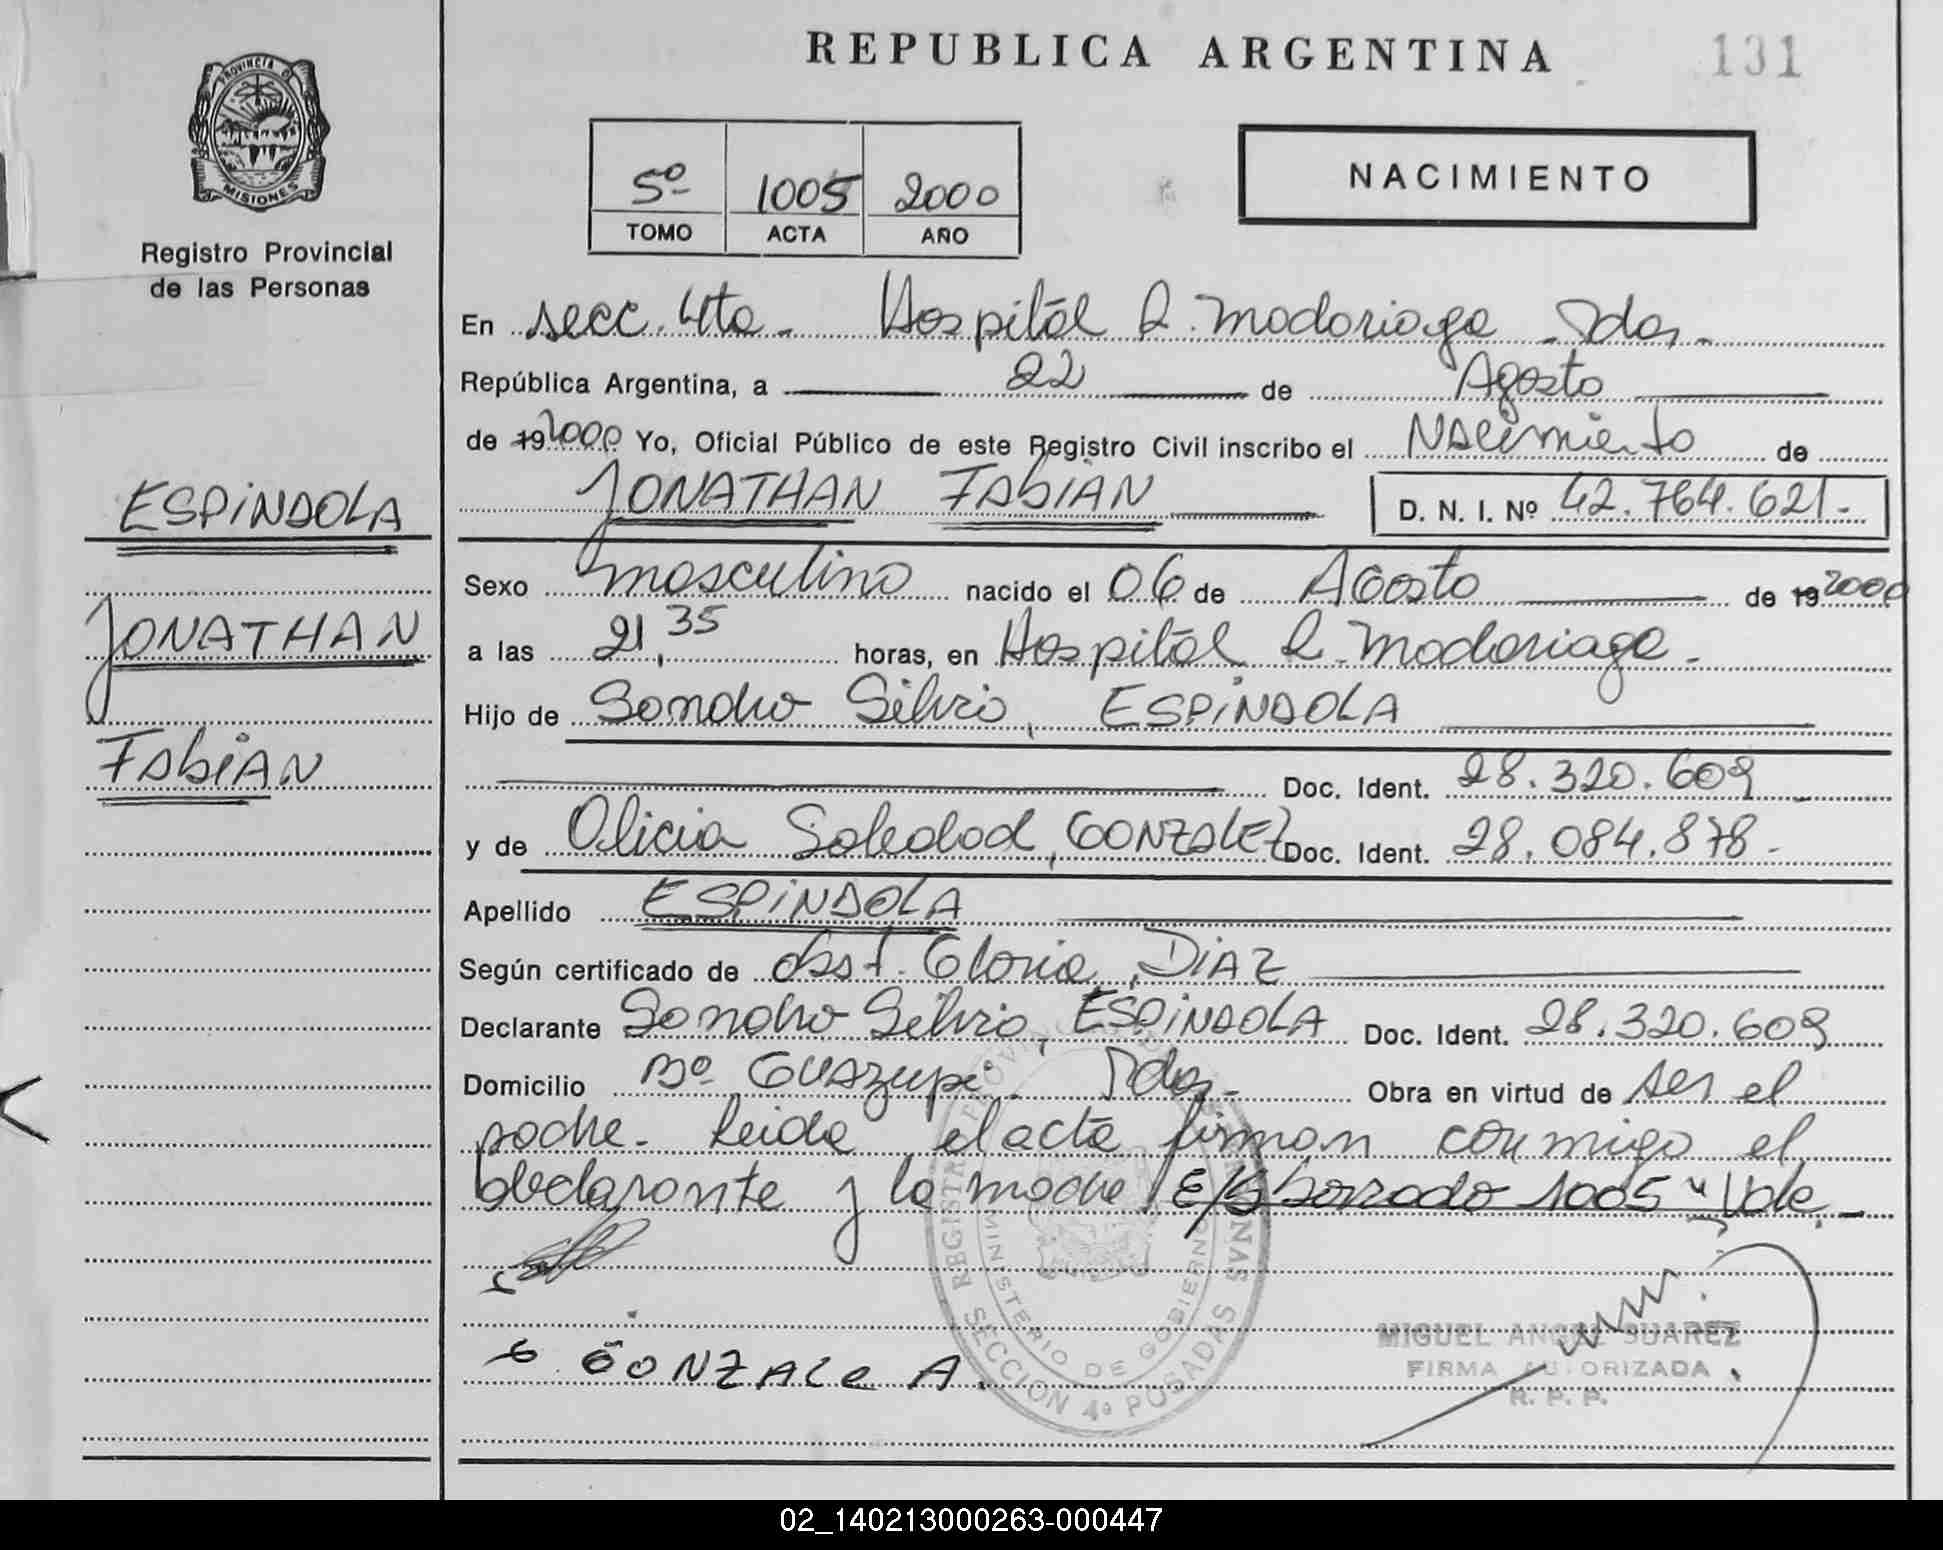 REPUBLICA ARGENTINA
131
PROVINCIA D
MISIONES
Registro Provincial
de las Personas
5º 1005 2000
TOMO ACTA AÑO
NACIMIENTO
En secc. 4ta. Hospitál R. Madariaga - Pdas.
República Argentina, a 22 de Agosto
de 19 2000 Yo, Oficial Público de este Registro Civil inscribo el Nacimiento de
JONATHAN FABIAN D. N. I. Nº 42.764.621.-
ESPINDOLA
JONATHAN
FABIAN
Sexo masculino nacido el 06 de Agosto de 19 2000
a las 21,35 horas, en Hospitál R. Madariaga.
Hijo de Sandro Silvio, ESPINDOLA
Doc. Ident. 28.320.609
y de Alicia Soledad, GONZALEZ Doc. Ident. 28.084.878.-
Apellido ESPINDOLA
Según certificado de Obst. Gloria, DIAZ
Declarante Sandro Silvio, ESPINDOLA Doc. Ident. 28.320.609
Domicilio Bº Guazupi - Pdas. Obra en virtud de ser el
padre. Leida el acta firman conmigo el
declarante y la madre E/S borrado 1005 " Vale.-
GONZALe A.
REGISTR PROVINC PERSONAS
MINISTERIO DE GOBIERNO
SECCION 4ª POSADAS
MIGUEL ANGEL SUAREZ
FIRMA AUTORIZADA
R. P. P.
02_140213000263-000447